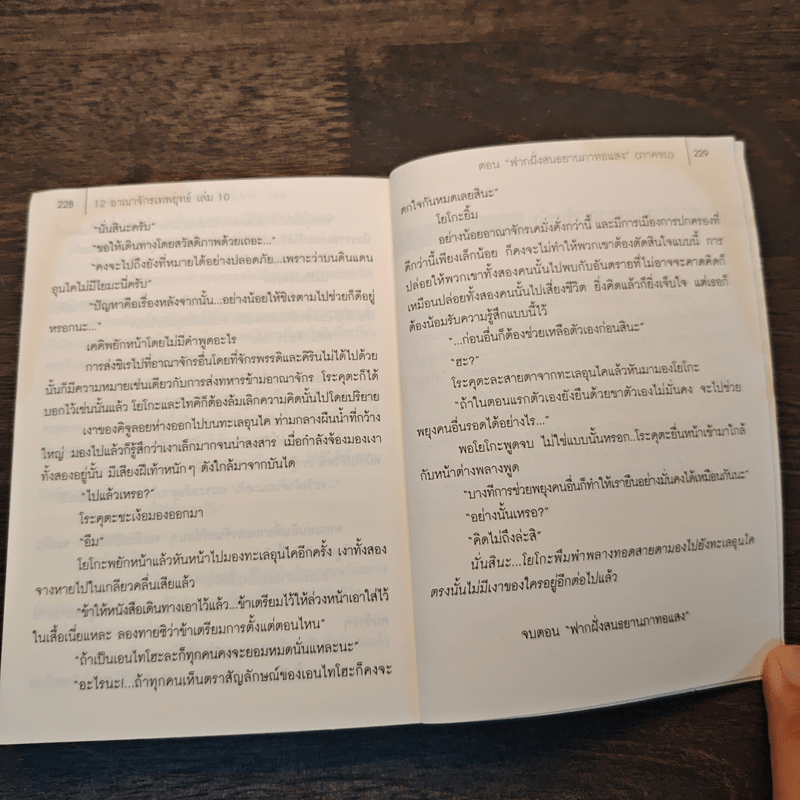 228 12 อาณาจักรเทพยุทธ์ เล่ม 10
"นั่นสินะครับ"
"ขอให้เดินทางโดยสวัสดิภาพด้วยเถอะ..."
"คงจะไปถึงยังที่หมายได้อย่างปลอดภัย...เพราะว่าบนดินแดน
อุนไคไม่มีโยมะนี่ครับ"
"ปัญหาคือเรื่องหลังจากนั้น...อย่างน้อยให้ชิเรตามไปช่วยก็ดีอยู่
หรอกนะ..."
เคคิพยักหน้าโดยไม่มีคำพูดอะไร
การส่งชิเรไปที่อาณาจักรอื่นโดยที่จักรพรรดิและคิรินไม่ได้ไปด้วย
นั้นก็มีความหมายเช่นเดียวกับการส่งทหารข้ามอาณาจักร โระคุตะก็ได้
บอกไว้เช่นนั้นแล้ว โยโกะและไทคิก็ต้องล้มเลิกความคิดนั้นไปโดยปริยาย
เงาของคิจูลอยห่างออกไปบนทะเลอุนไค ท่ามกลางผืนน้ำที่กว้าง
ใหญ่ มองไปแล้วก็รู้สึกว่าเงาเล็กมากจนน่าสงสาร เมื่อกำลังจ้องมองเงา
ทั้งสองอยู่นั้น มีเสียงฝีเท้าหนักๆ ดังใกล้มาจากบันได
"ไปแล้วเหรอ?"
โระคุตะชะเง้อมองออกมา
"อืม"
โยโกะพยักหน้าแล้วหันหน้าไปมองทะเลอุนไคอีกครั้ง เงาทั้งสอง
จางหายไปในเกลียวคลื่นเสียแล้ว
"ข้าให้หนังสือเดินทางเอาไว้แล้ว...ข้าเตรียมไว้ให้ล่วงหน้าเอาใส่ไว้
ในเสื้อเนี่ยแหละ ลองทายซิว่าข้าเตรียมการตั้งแต่ตอนไหน"
"ถ้าเป็นเอนไทโฮะละก็ทุกคนคงจะยอมหมดนั่นแหละนะ"
"อะไรนะ!...ถ้าทุกคนเห็นตราสัญลักษณ์ของเอนไทโฮะก็คงจะ
ตอน "ฟากฝั่งสนธยานภาทอแสง" (ภาคจบ) 229
ตกใจกันหมดเลยสินะ"
โยโกะยิ้ม
อย่างน้อยอาณาจักรเคมั่งคั่งกว่านี้ และมีการเมืองการปกครองที่
ดีกว่านี้เพียงเล็กน้อย ก็คงจะไม่ทำให้พวกเขาต้องตัดสินใจแบบนี้ การ
ปล่อยให้พวกเขาทั้งสองคนนั้นไปพบกับอันตรายที่ไม่อาจจะคาดคิดก็
เหมือนปล่อยทั้งสองคนนั้นไปเสี่ยงชีวิต ยิ่งคิดแล้วก็ยิ่งเจ็บใจ แต่เธอก็
ต้องน้อมรับความรู้สึกแบบนี้ไว้
"...ก่อนอื่นก็ต้องช่วยเหลือตัวเองก่อนสินะ"
"ฮะ?"
โระคุตะละสายตาจากทะเลอุนไคแล้วหันมามองโยโกะ
"ถ้าในตอนแรกตัวเองยังยืนด้วยขาตัวเองไม่มั่นคง จะไปช่วย
พยุงคนอื่นรอดได้อย่างไร..."
พอโยโกะพูดจบ ไม่ใช่แบบนั้นหรอก..โระคุตะยื่นหน้าเข้ามาใกล้
กับหน้าต่างพลางพูด
"บางทีการช่วยพยุงคนอื่นก็ทำให้เรายืนอย่างมั่นคงได้เหมือนกันนะ"
"อย่างนั้นเหรอ?"
"คิดไม่ถึงล่ะสิ"
นั่นสินะ...โยโกะพึมพำพลางทอดสายตามองไปยังทะเลอุนไค
ตรงนั้นไม่มีเงาของใครอยู่อีกต่อไปแล้ว
จบตอน "ฟากฝั่งสนธยานภาทอแสง"